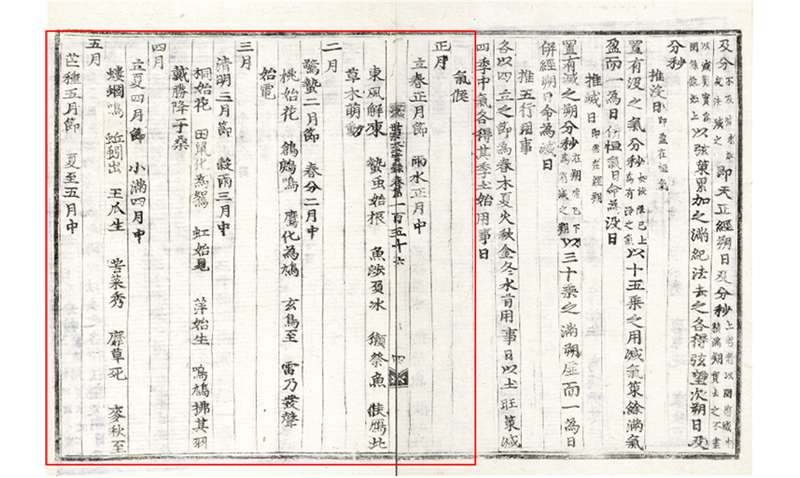 及分不及減者加紀法減之即天正經朔日及分秒上考者以閏餘減中
以減實餘同後
積滿朔實去之不盡
以弦策累加之滿紀法去之各得弦望次朔日及
分秒
推沒日即盈在恒氣
置有沒之氣分秒以十五乘之用減氣策餘滿氣
盈而一為日併恒氣日命為沒日
推滅日即虛在經朔
置有滅之朔分秒在朔虛已下為有滅之朔以三十乘之滿朔虛而一為日
併經朔日命為滅日
推五行用事
各以四立之節為春木夏火秋金冬水首用事日以土旺策減
四季中氣各得其季土始用事日
氣候
正月
立春正月節 雨水正月中
世宗 實錄卷第一百五十六 四
東風解凍 蟄虫始振 魚涉負冰 獺祭魚 候鴈北
草木萌動
二月
驚蟄二月節 春分二月中
桃始花 鶬鶊鳴 鷹化為鳩 玄鳥至 雷乃發聲
始電
三月
清明三月節 穀雨三月中
桐始花 田鼠化為鴽 虹始見 萍始生 鳴鳩拂其羽
戴勝降于桑
四月
立夏四月節 小滿四月中
螻蟈鳴 蚯蚓出 王瓜生 苦菜秀 靡草死 麥秋至
五月
芒種五月節 夏至五月中